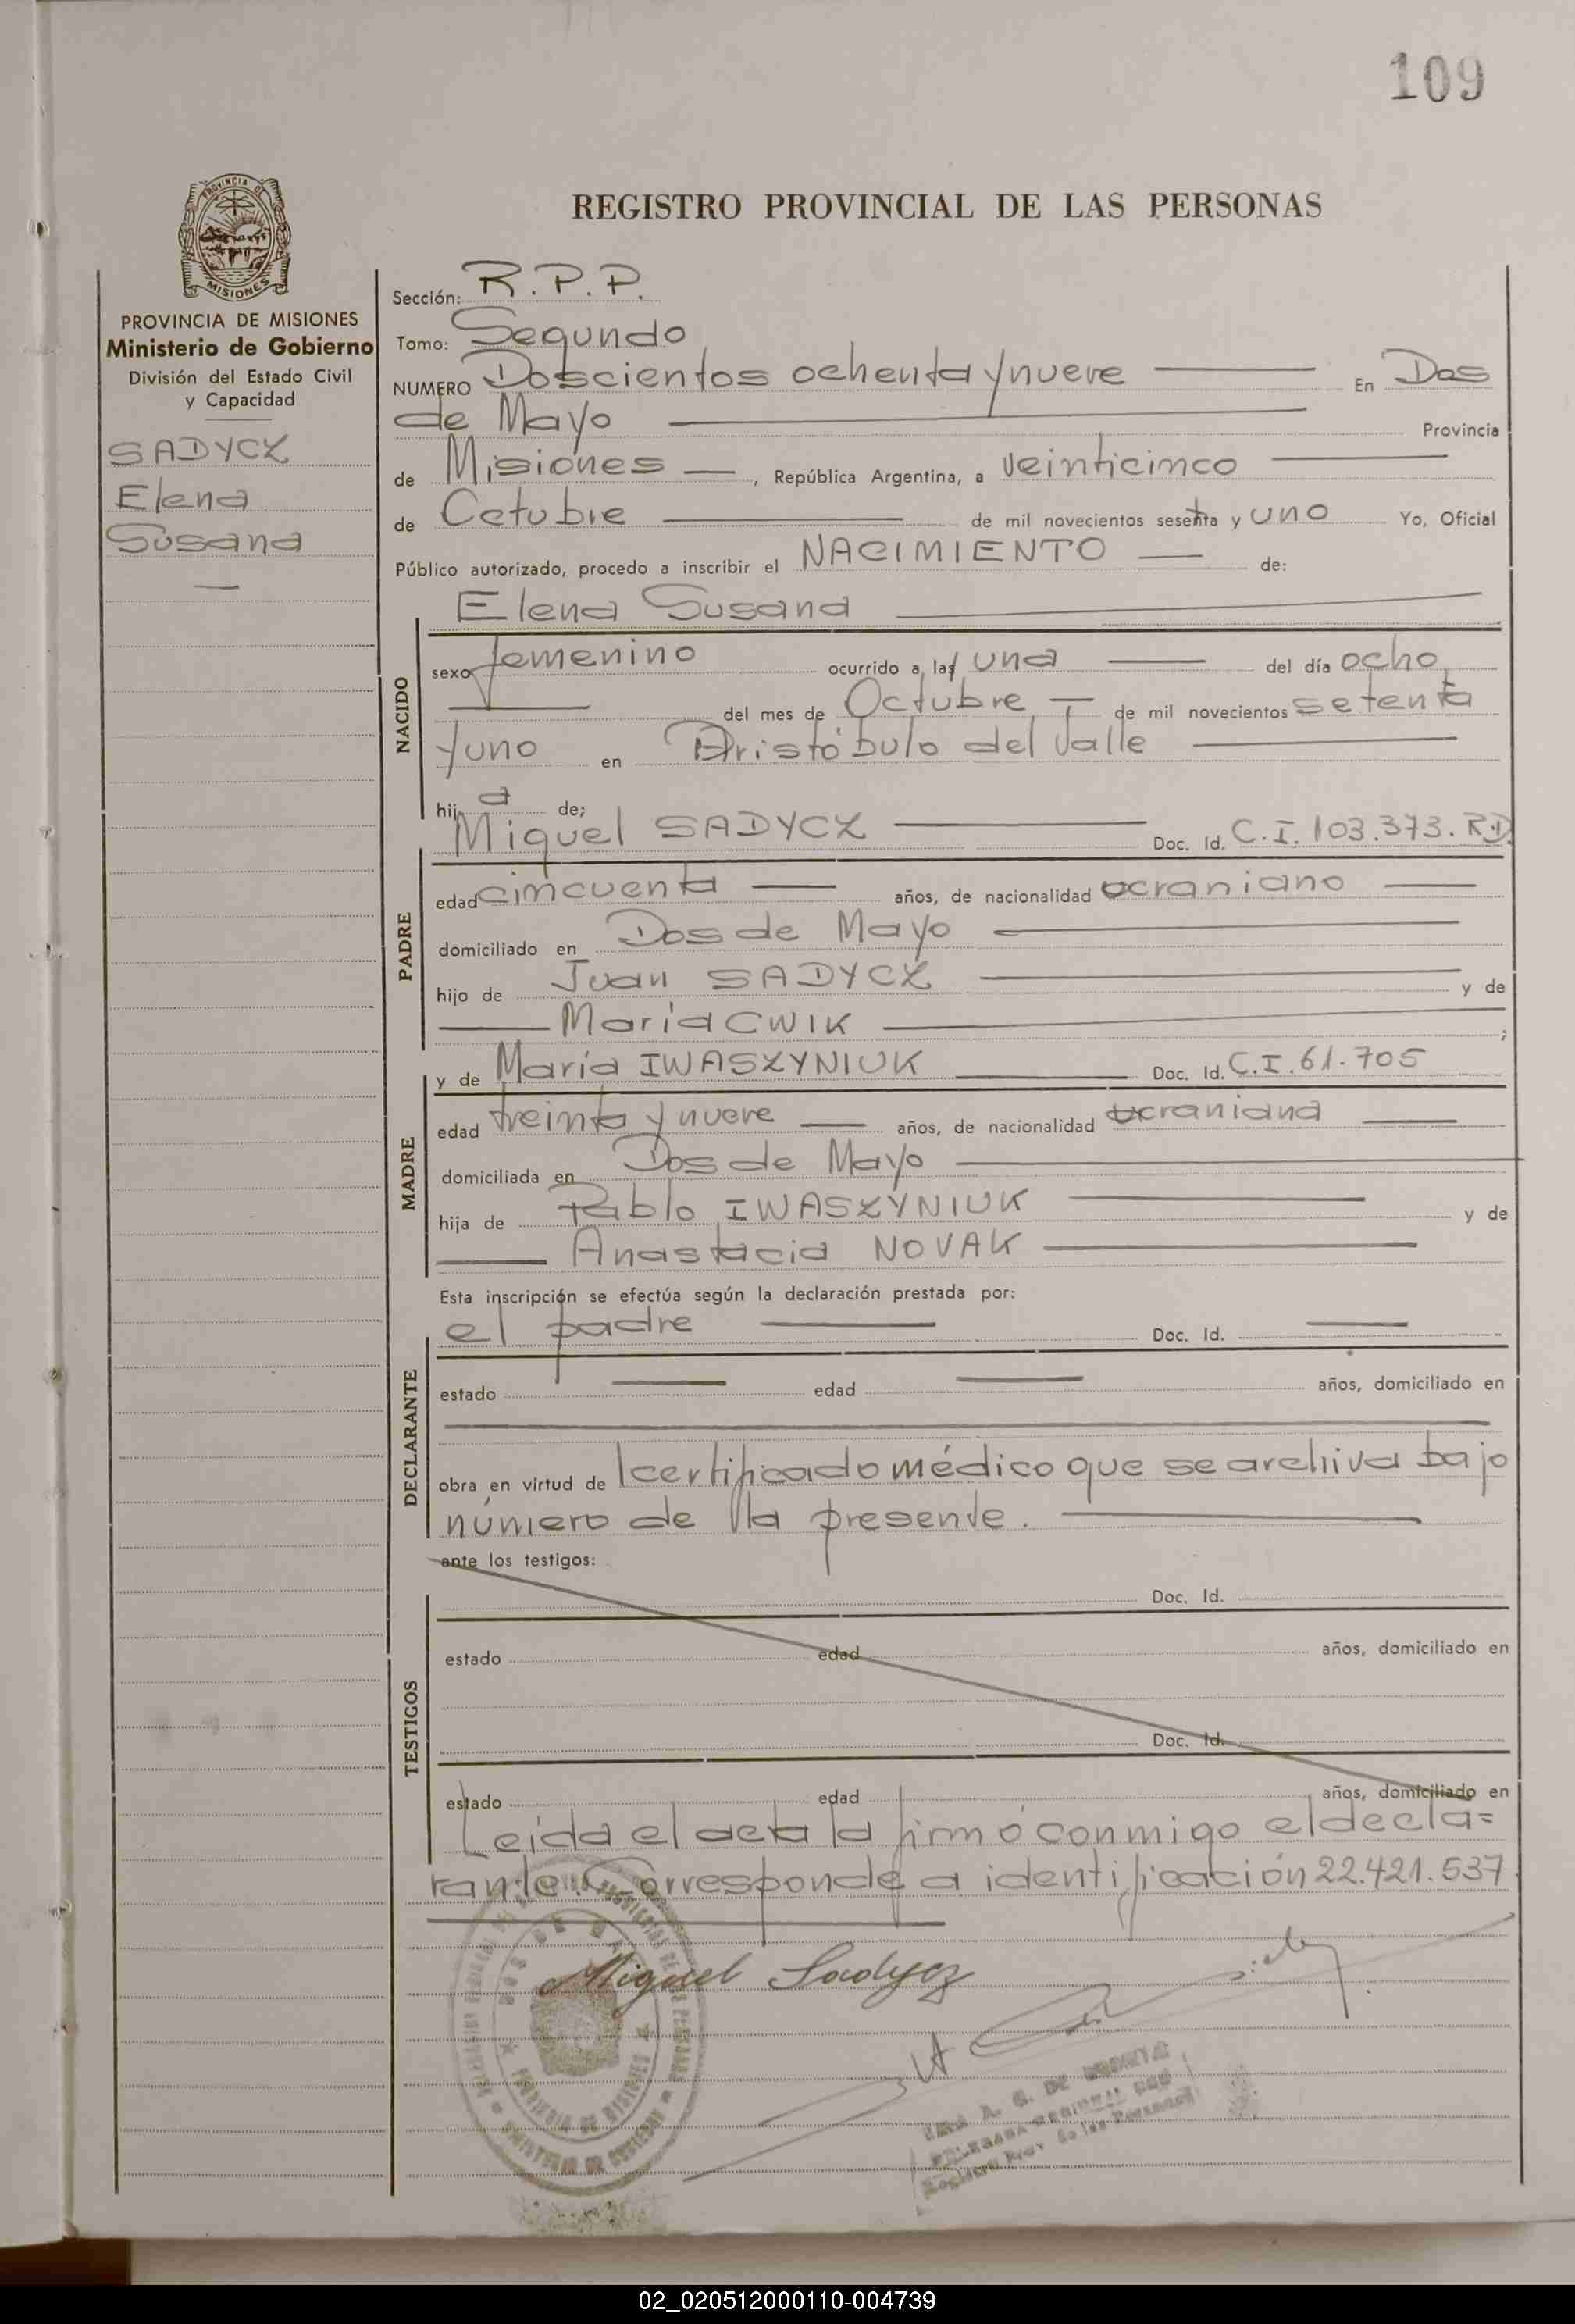 109
PROVINCIA DE
MISIONES
REGISTRO PROVINCIAL DE LAS PERSONAS
PROVINCIA DE MISIONES
Ministerio de Gobierno
División del Estado Civil
y Capacidad
SADYCZ
Elena
Susana
Sección: R.P.P.
Tomo: Segundo
NUMERO Doscientos ochenta y nueve En Dos
de Mayo Provincia
de Misiones, República Argentina, a veinticinco
de Octubre de mil novecientos sesenta y uno Yo, Oficial
Público autorizado, procedo a inscribir el NACIMIENTO de:
Elena Susana
NACIDO
sexo femenino ocurrido a las una del día ocho
del mes de Octubre de mil novecientos setenta
y uno en Aristóbulo del Valle
hija de;
Miguel SADYCZ Doc. Id. C.I. 103.373. R.D.
PADRE
edad cincuenta años, de nacionalidad ucraniano
domiciliado en Dos de Mayo
hijo de Juan SADYCZ y de
María CWIK ;
y de María IWASZYNIUK Doc. Id. C.I. 61.705
MADRE
edad treinta y nueve años, de nacionalidad ucraniana
domiciliada en Dos de Mayo
hija de Pablo IWASZYNIUK y de
Anastacia NOVAK
Esta inscripción se efectúa según la declaración prestada por:
el padre Doc. Id.
DECLARANTE
estado edad años, domiciliado en
obra en virtud de l certificado médico que se archiva bajo
número de la presente.
ante los testigos:
Doc. Id.
TESTIGOS
estado edad años, domiciliado en
Doc. Id.
estado edad años, domiciliado en
Leída el acta la firmó conmigo el decla=
rante. Corresponde a identificación 22.421.537
Miguel Sadycz
02_020512000110-004739